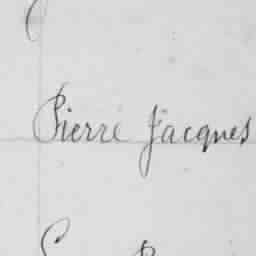 Pierre Jacques